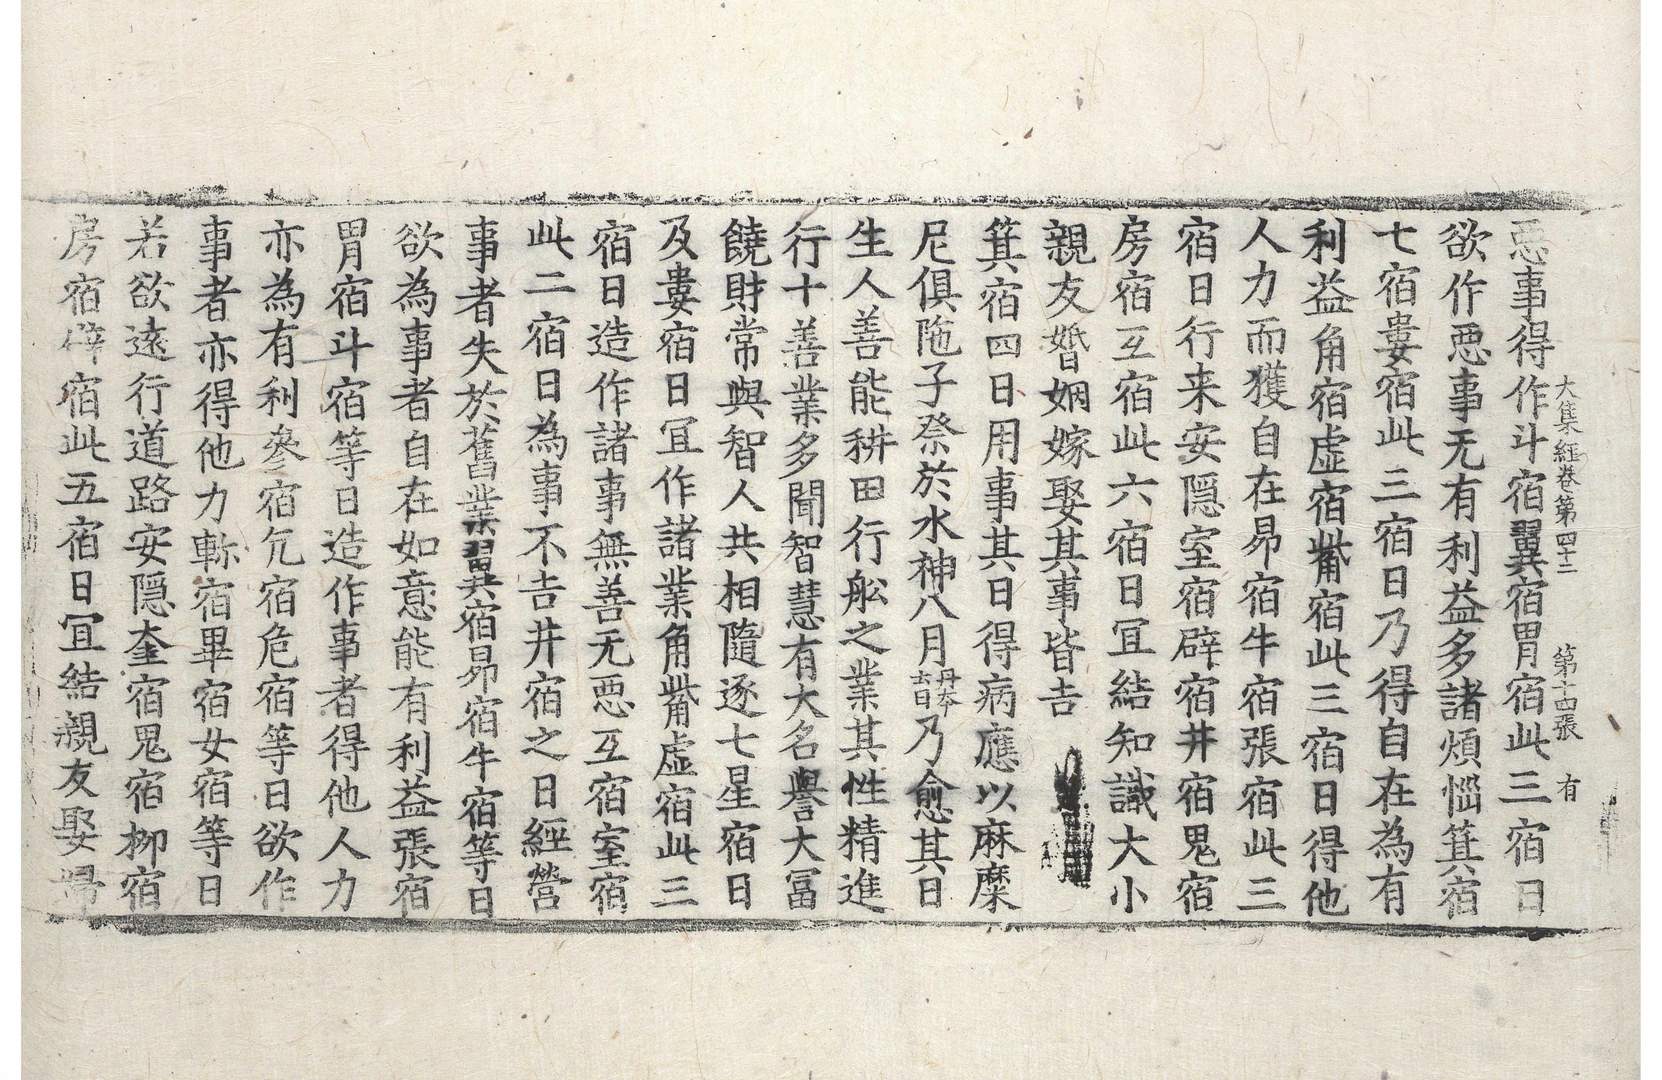 大集経卷第四十二　第十四張　有
惡事得作斗宿翼宿胃宿此三宿日
欲作惡事无有利益多諸煩惱箕宿
七宿婁宿此三宿日乃得自在為有
利益角宿虛宿觜宿此三宿日得他
人力而獲自在昴宿牛宿張宿此三
宿日行来安隱室宿辟宿井宿鬼宿
房宿互宿此六宿日冝結知識大小
親友婚姻嫁娶其事皆吉
箕宿四日用事其日得病應以麻糜
尼俱陁子祭於水神八月丹本六日乃愈其日
生人善能耕田行舩之業其性精進
行十善業多聞智慧有大名譽大冨
饒財常與智人共相隨逐七星宿日
及婁宿日冝作諸業角觜虛宿此三
宿日造作諸事無善无惡互宿室宿
此二宿日為事不吉井宿之日經營
事者失於舊業翼宿昴宿牛宿等日
欲為事者自在如意能有利益張宿
胃宿斗宿等日造作事者得他人力
亦為有利參宿亢宿危宿等日欲作
事者亦得他力軫宿畢宿女宿等日
若欲遠行道路安隱奎宿鬼宿柳宿
房宿辟宿此五宿日冝結親友娶婦